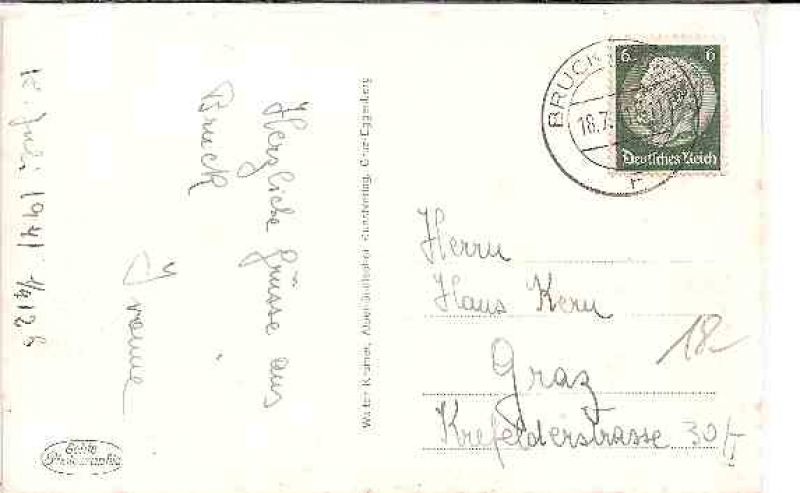 Herzliche Grüsse aus
Bruck
Ivonne
18. Juli 1941
Walter Kramer, Alpenländischer Kunstverlag, Graz-Eggenberg
BRUCK
18.7.
6 6
Deutsches Reich
Herrn
Hans Kern
Graz
Krefelderstrasse 30/I
18
Echte
Photographie